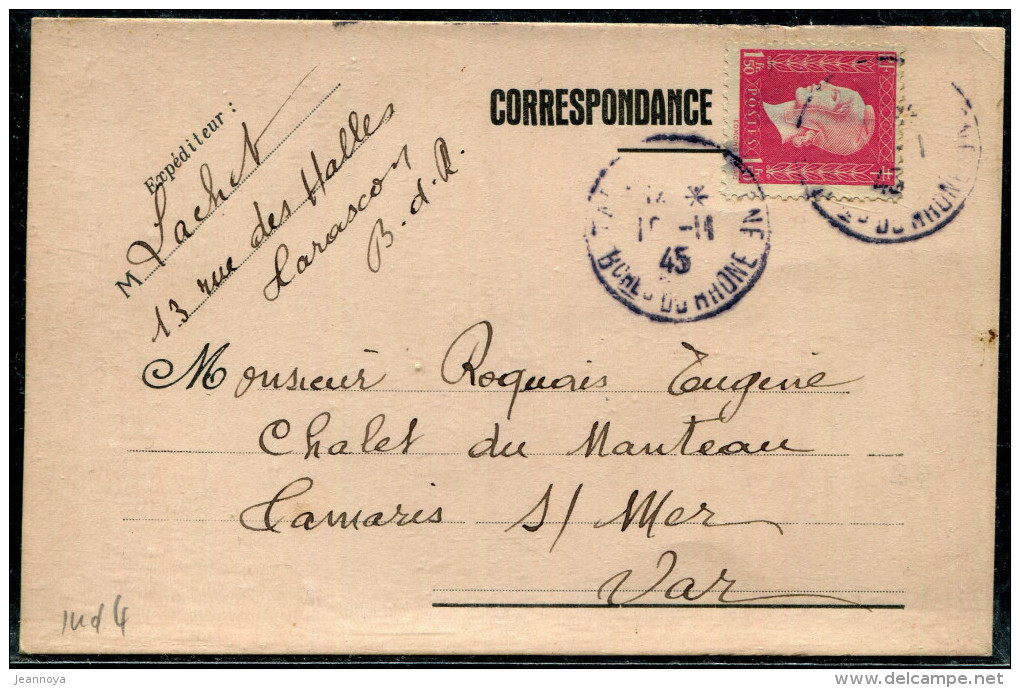 Expéditeur :
M Lachet
13 rue des Halles
Tarascon
B. d. R.
CORRESPONDANCE
1 Fr. 50 POSTES 1 Fr.
*
-11
45
BCHES DU RHONE
45
DU RHONE
Monsieur Roquais Eugène
Chalet du Manteau
Tamaris s/ Mer
Var
Ind 4
jeannoya
www.delcampe.net